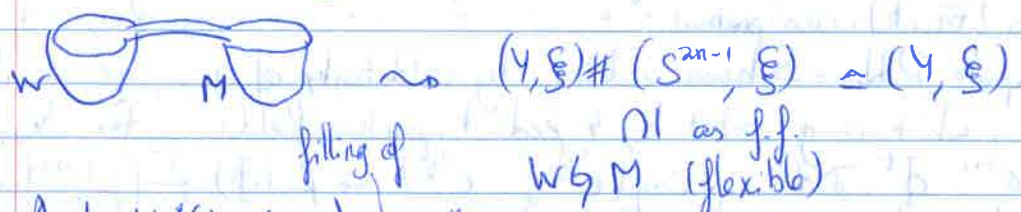 W M ~> (Y, ξ) # (S^{2n-1}, ξ) ≃ (Y, ξ)
filling of ∩| as f.f.
W ♮ M (flexible)